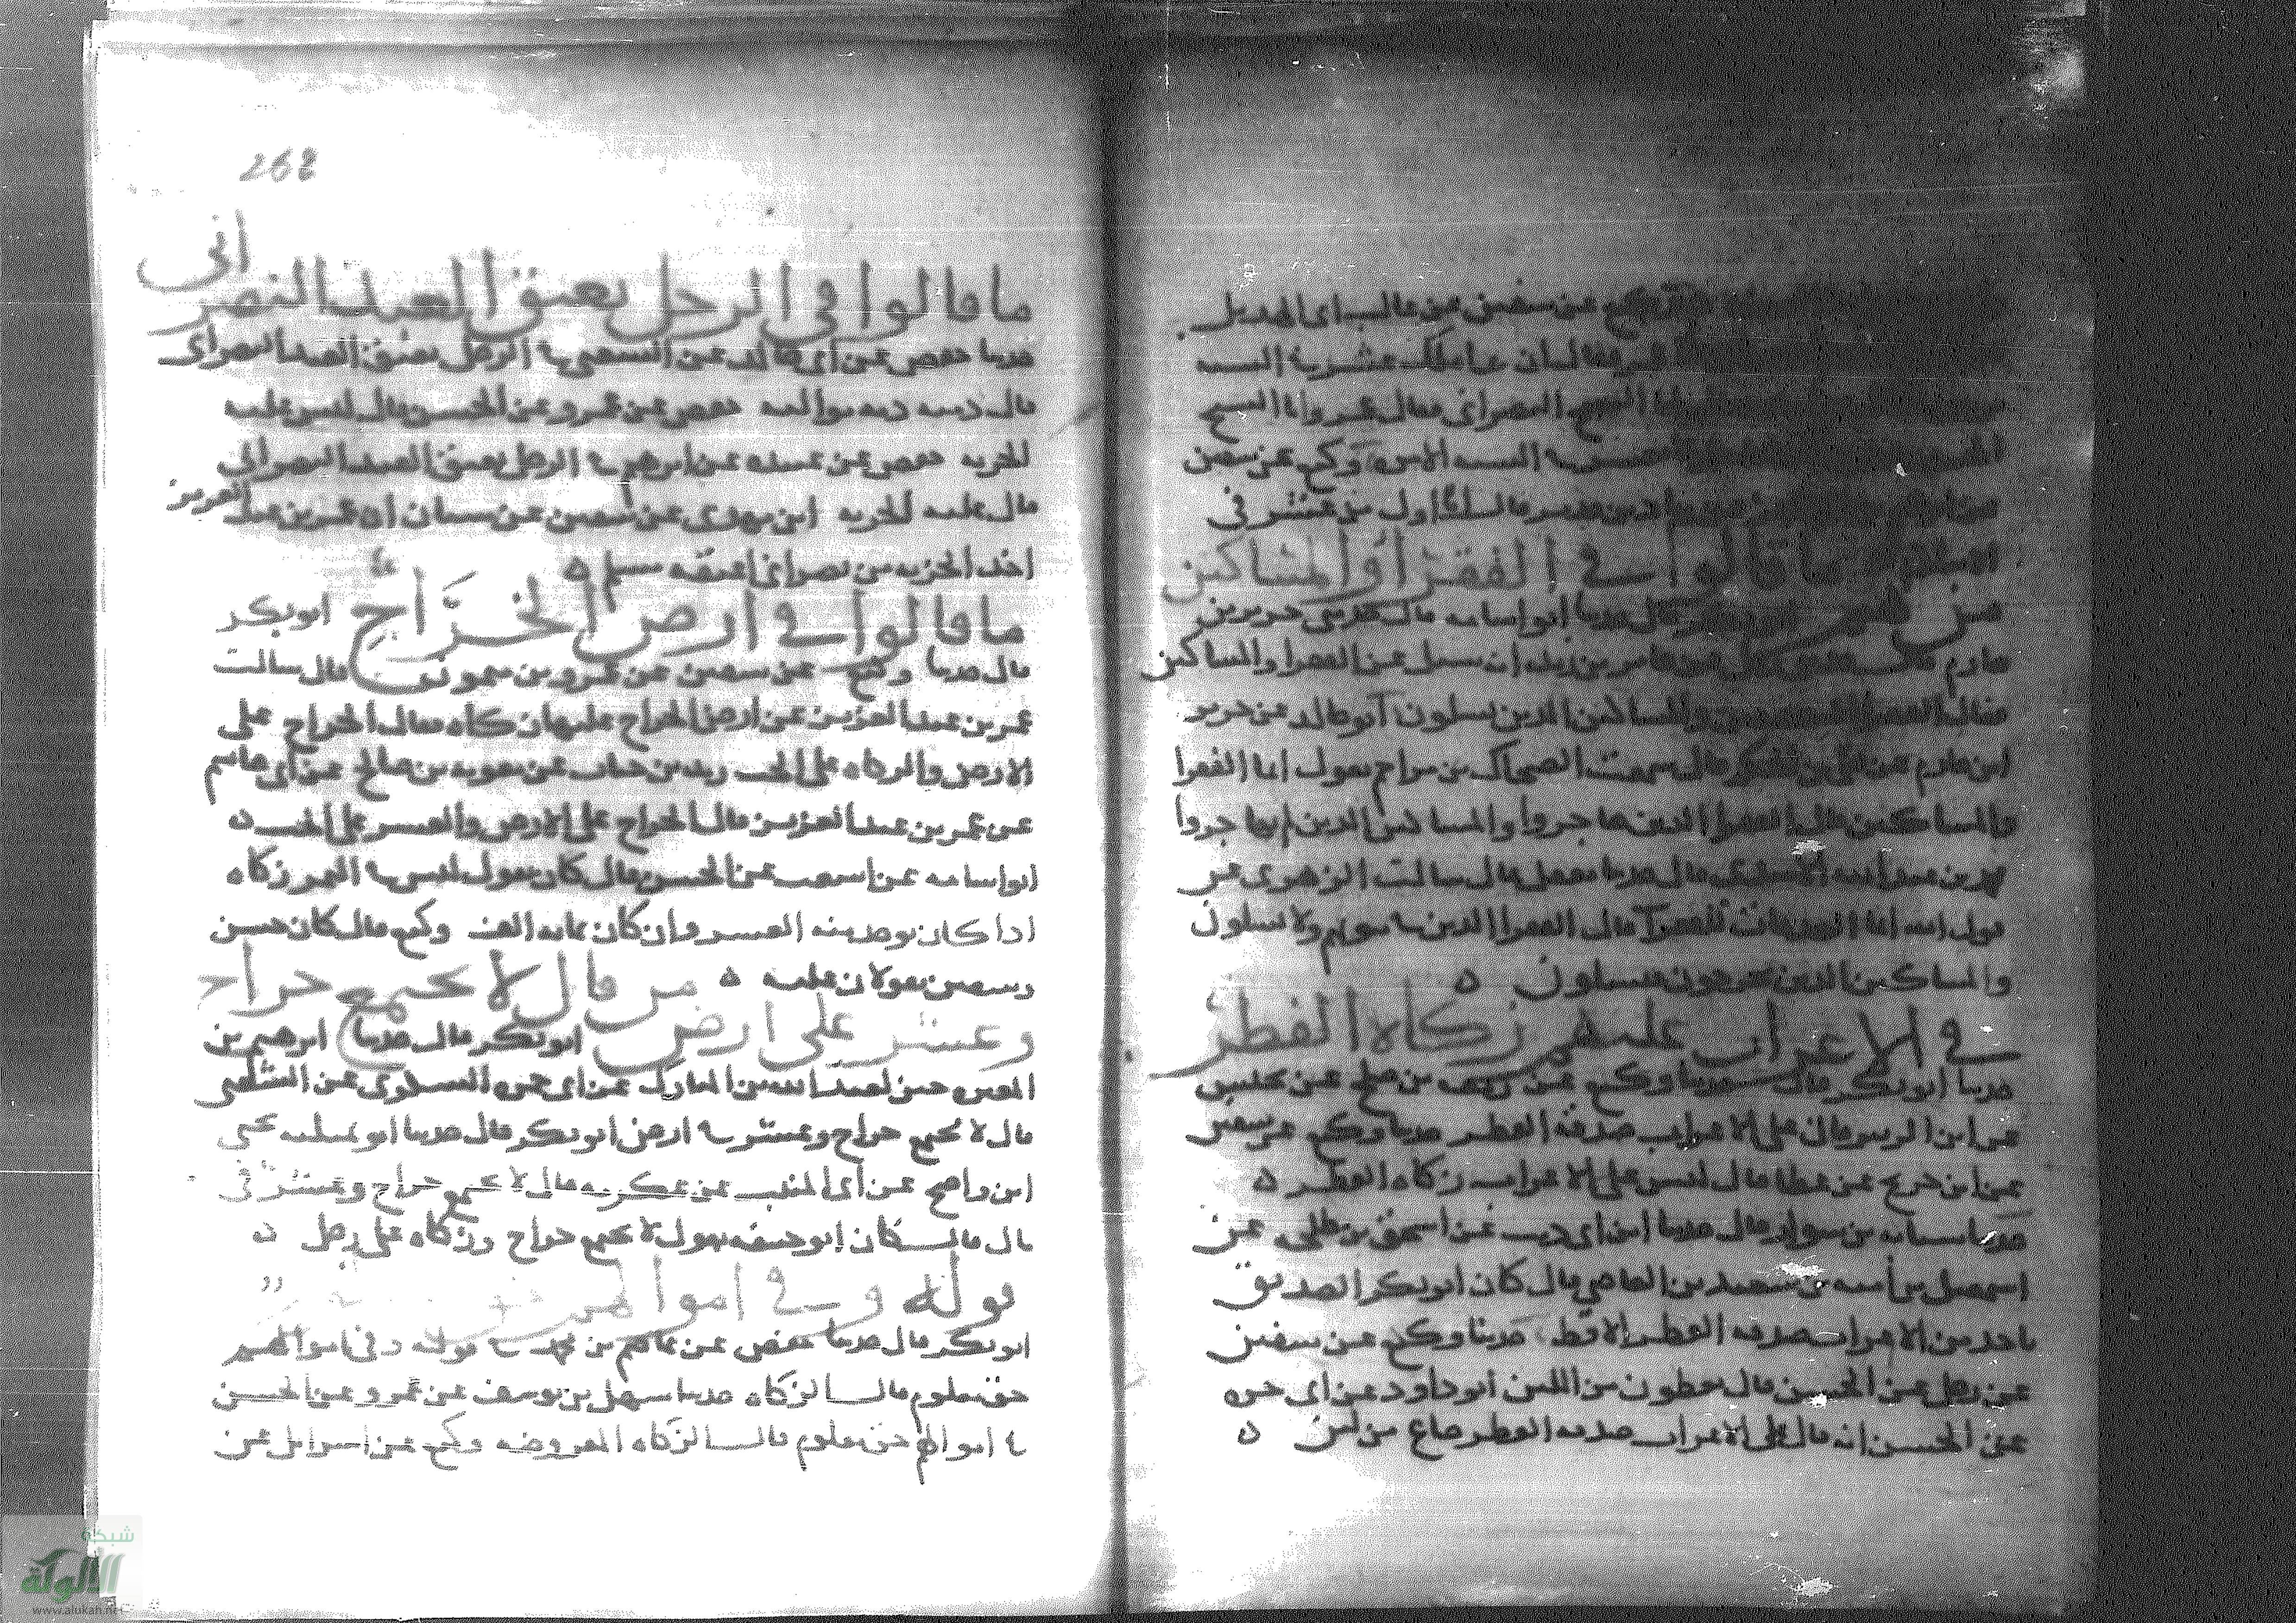 وكيع عن سفين عن غالب ابى الهديل
على ملك عشر به السه
المسح النصرانى فقال عمر واما المسح
وكيع عن سفين
قال لنا اول من عشر فى
ما قالوا فى الفقرا والمساكين
من هم حدثنا ابو اسامه قال حدثنى جرير بن
حازم جابر بن زيد انه سئل عن الفقرا والمساكين
فقال الفقرا والمساكين الذين يسلون ابو خالد عن جرير
ابن حازم عن على بن قال سمعت الضحاك بن مزاحم يقول انما الفقرا
والمساكين قال الفقرا الذين هاجروا والمساكين الذين لم يهاجروا
قال حدثنا معقل قال سالت الزهرى عن
قول الله انما الصدقات للفقرا قال الفقرا الذين فى بيوتهم ولا يسلون
والمساكين الذين يخرجون فيسلون ه
فى الاعراب عليهم زكاة الفطر
حدثنا ابو بكر قال حدثنا وكيع عن
عن ابن الزبير قال على الاعراب صدقه الفطر حدثنا وكيع عن سفين
عن ابن جريج عن عطا قال ليس على الاعراب زكاه الفطر ه
حدثنا شبابه بن سوار قال حدثنا ابن ابى ذيب عن اسحق بن طلحه عن
اسمعيل بن اميه بن سعيد بن العاصى قال كان ابو بكر الصديق
ياخذ من الاعراب صدقه الفطر الاقط حدثنا وكيع عن سفين
عن رجل عن الحسن قال يعطون من اللبن ابو داود عن ابى حره
عن الحسن انه قال على الاعراب صدقه الفطر صاع من لبن ه
268
ما قالوا فى الرجل يعتق العبد النصرانى
حدثنا حفص عن ابى خالد عن الشعبى فى الرجل يعتق العبد النصرانى
قال ذمته ذمه مواليه حفص عن عمرو عن الحسن قال ليس عليه
الجزيه حفص عن عبيده عن ابرهيم فى الرجل يعتق العبد النصرانى
قال عليه الجزيه ابن مهدى عن سفين عن سنان ان عمر بن عبد العزيز
اخذ الجزيه من نصرانى اعتقه مسلم ه
ما قالوا فى ارض الخراج ابو بكر
قال حدثنا وكيع عن سفين عن عمرو بن ميمون قال سالت
عمر بن عبد العزيز عن ارض الخراج عليها زكاه فقال الخراج على
الارض والزكاه على الحب زيد بن حباب عن معويه بن صالح عن ابى عاصم
عن عمر بن عبد العزيز قال الخراج على الارض والعشر على الحب ه
ابو اسامه عن اشعث عن الحسن قال كان يقول ليس فى التمر زكاه
اذا كان يوخذ منه العشر وان كان مايه الف وكيع قال كان حسن
وسفين يقولان عليه ه من قال لا يجتمع خراج
وعشر على ارض ابو بكر قال حدثنا ابرهيم بن
المغيره ختن لعبد الله بن المبارك عن ابى حمزه السكرى عن الشعبى
قال لا يجتمع خراج وعشر فى ارض ابو بكر قال حدثنا ابو تميله يحيى
ابن واضح عن ابى المنيب عن عكرمه قال لا يجتمع خراج وعشر فى
مال قال كان ابو حنيفه يقول لا يجتمع خراج وزكاه على رجل ه
قوله وفى اموالهم
ابو بكر قال حدثنا حفص عن عاصم بن محمد فى قوله وفى اموالهم
حق معلوم قال الزكاه حدثنا سهل بن يوسف عن عمرو عن الحسن
فى اموالهم حق معلوم قال الزكاه المفروضه وكيع عن اسرائيل عن
شبكة
الألوكة
www.alukah.net